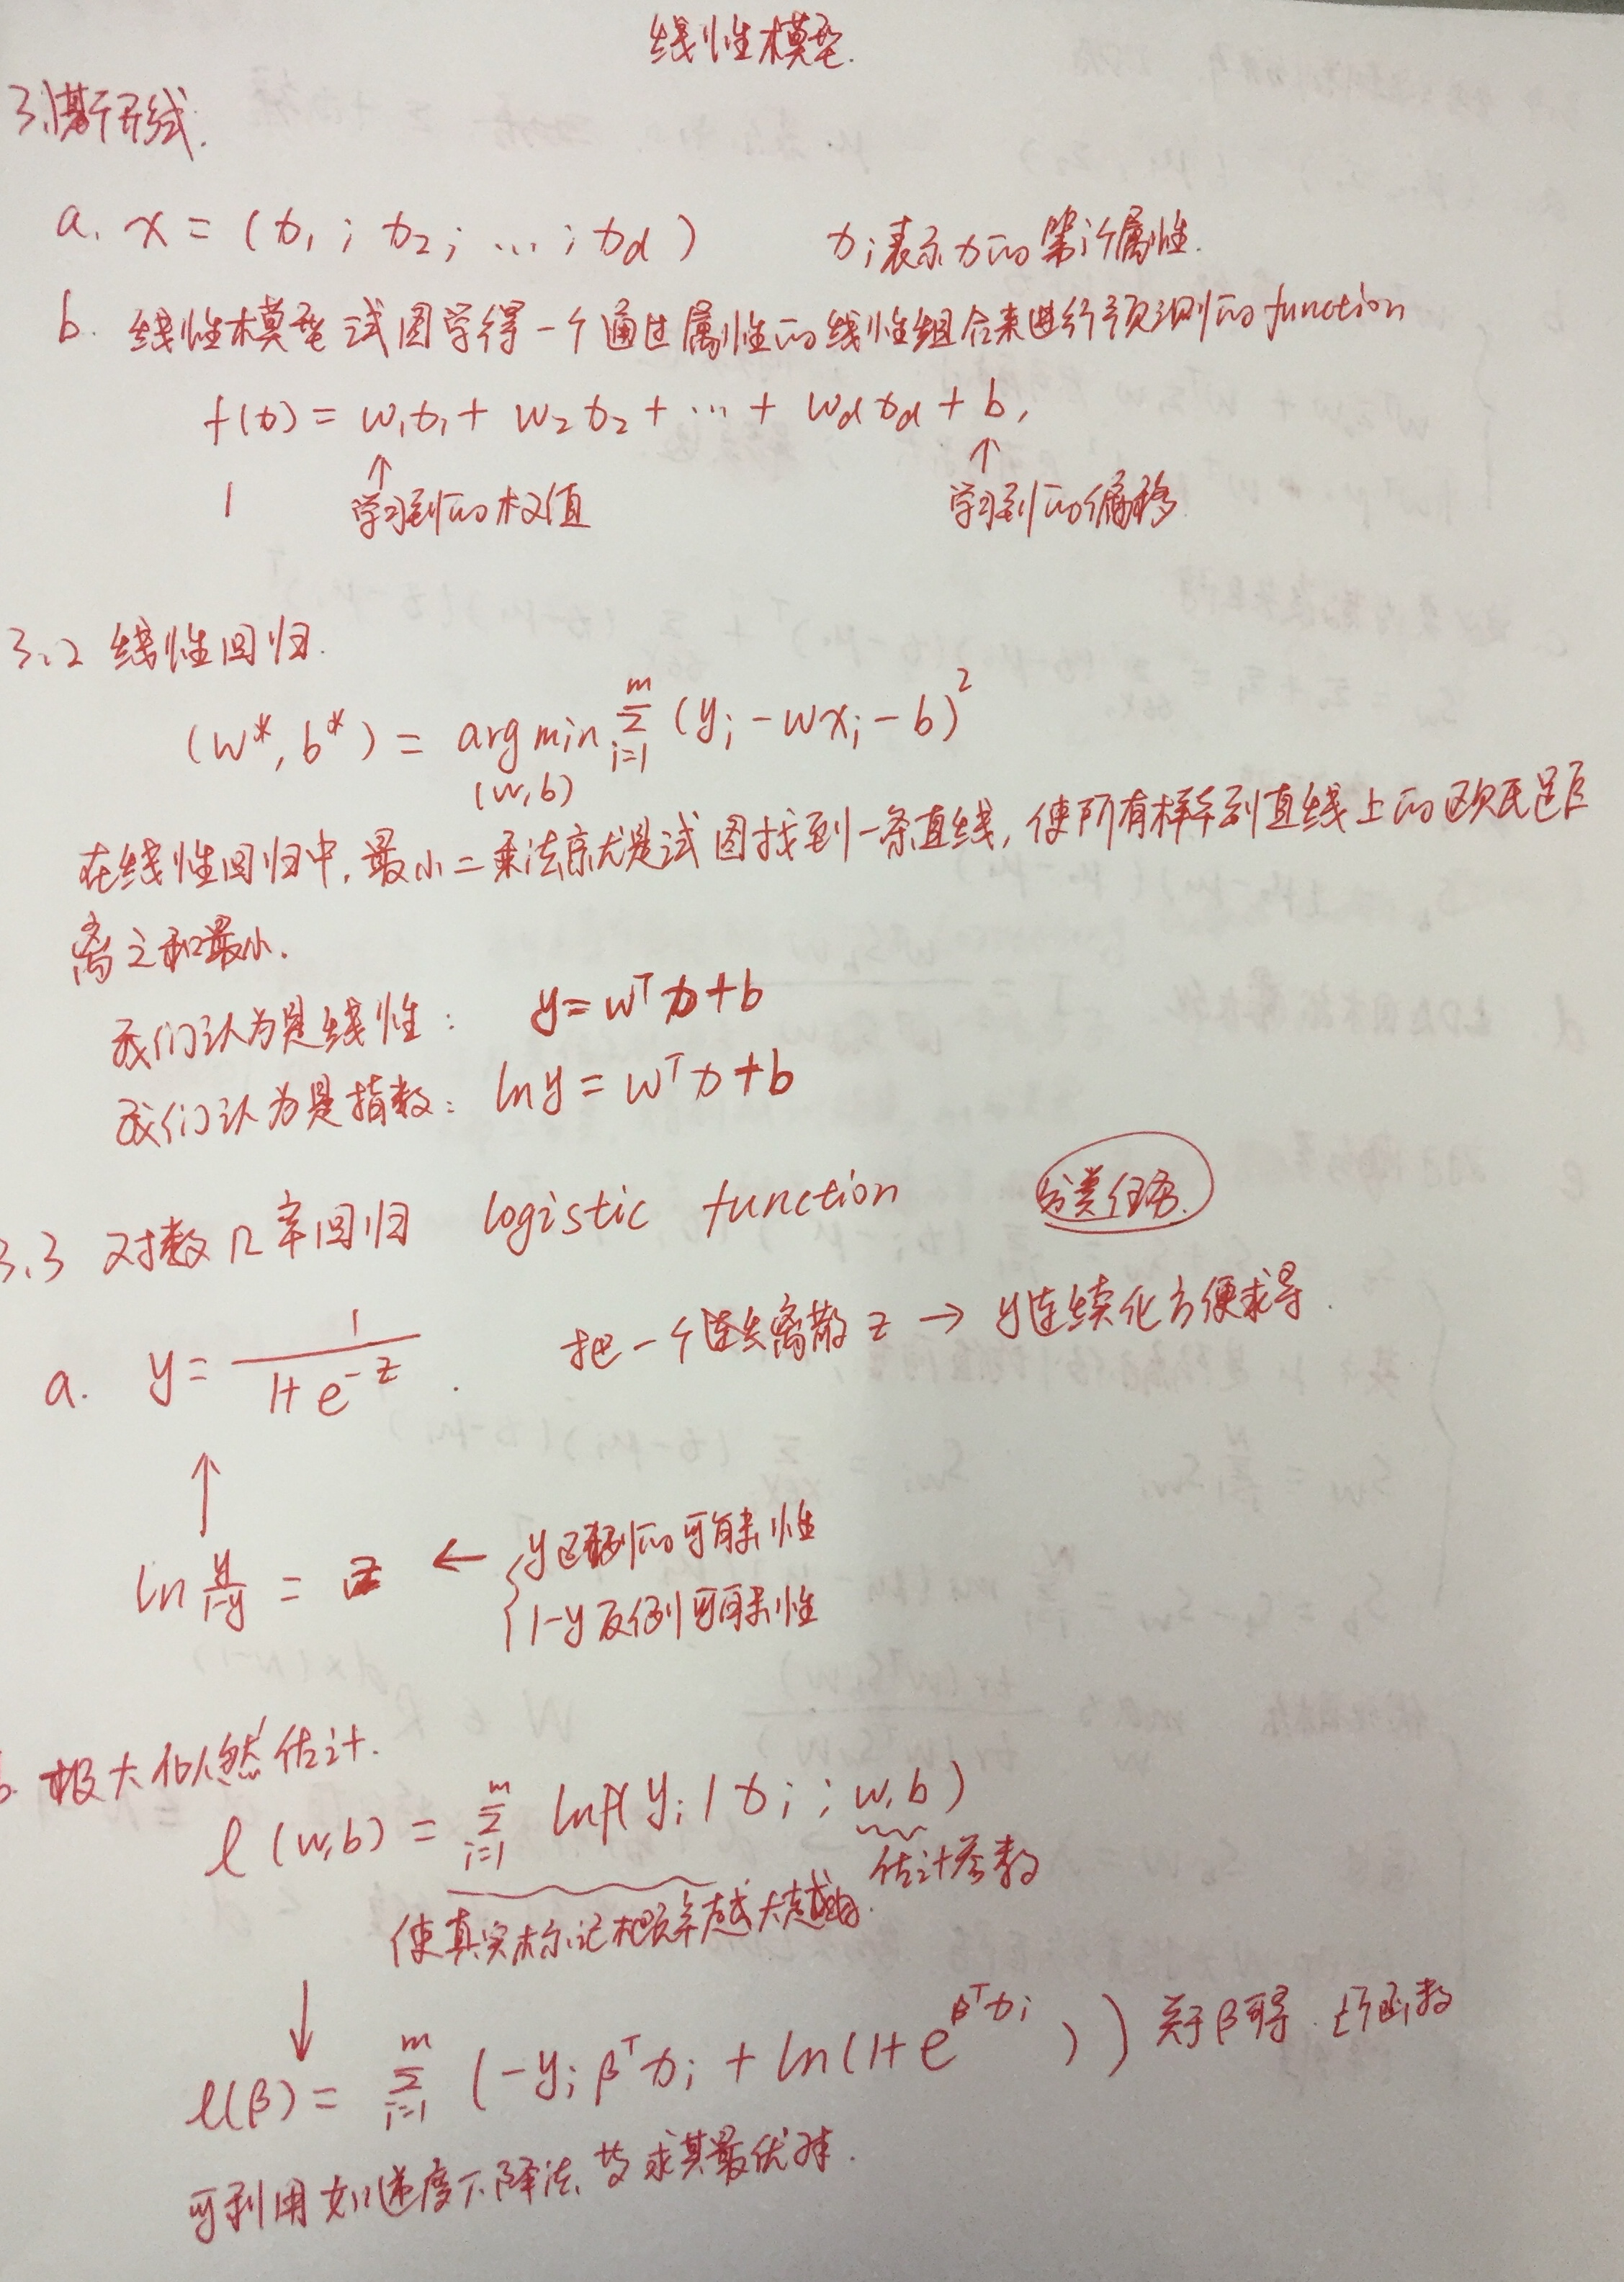 线性模型.
3.1 基本形式.
a. x = (x₁; x₂; ...; x_d) xᵢ表示x的第i个属性.
b. 线性模型试图学得一个通过属性的线性组合来进行预测的function
f(x) = w₁x₁ + w₂x₂ + ... + w_d x_d + b,
↑ ↑
学习到的权值 学习到的偏移
3.2 线性回归.
(w*, b*) = arg min_(w,b) Σ_{i=1}^{m} (yᵢ - wxᵢ - b)²
在线性回归中,最小二乘法就是试图找到一条直线,使所有样本到直线上的欧氏距
离之和最小.
我们认为是线性: y = wᵀx + b
我们认为是指数: ln y = wᵀx + b
3.3 对数几率回归 logistic function 分类任务.
a. y = 1/(1+e^{-z}). 把一个离散 z → y连续化方便求导.
↑
ln y/(1-y) = z ← { y正例的可能性
1-y 反例可能性
b. 极大似然估计.
ℓ(w,b) = Σ_{i=1}^{m} ln p(yᵢ | xᵢ; w,b)
估计参数
使真实标记概率越大越好.
↓
ℓ(β) = Σ_{i=1}^{m} (-yᵢβᵀxᵢ + ln(1+e^{βᵀxᵢ})) 关于β可导 凸函数
可利用如梯度下降法等求其最优解.